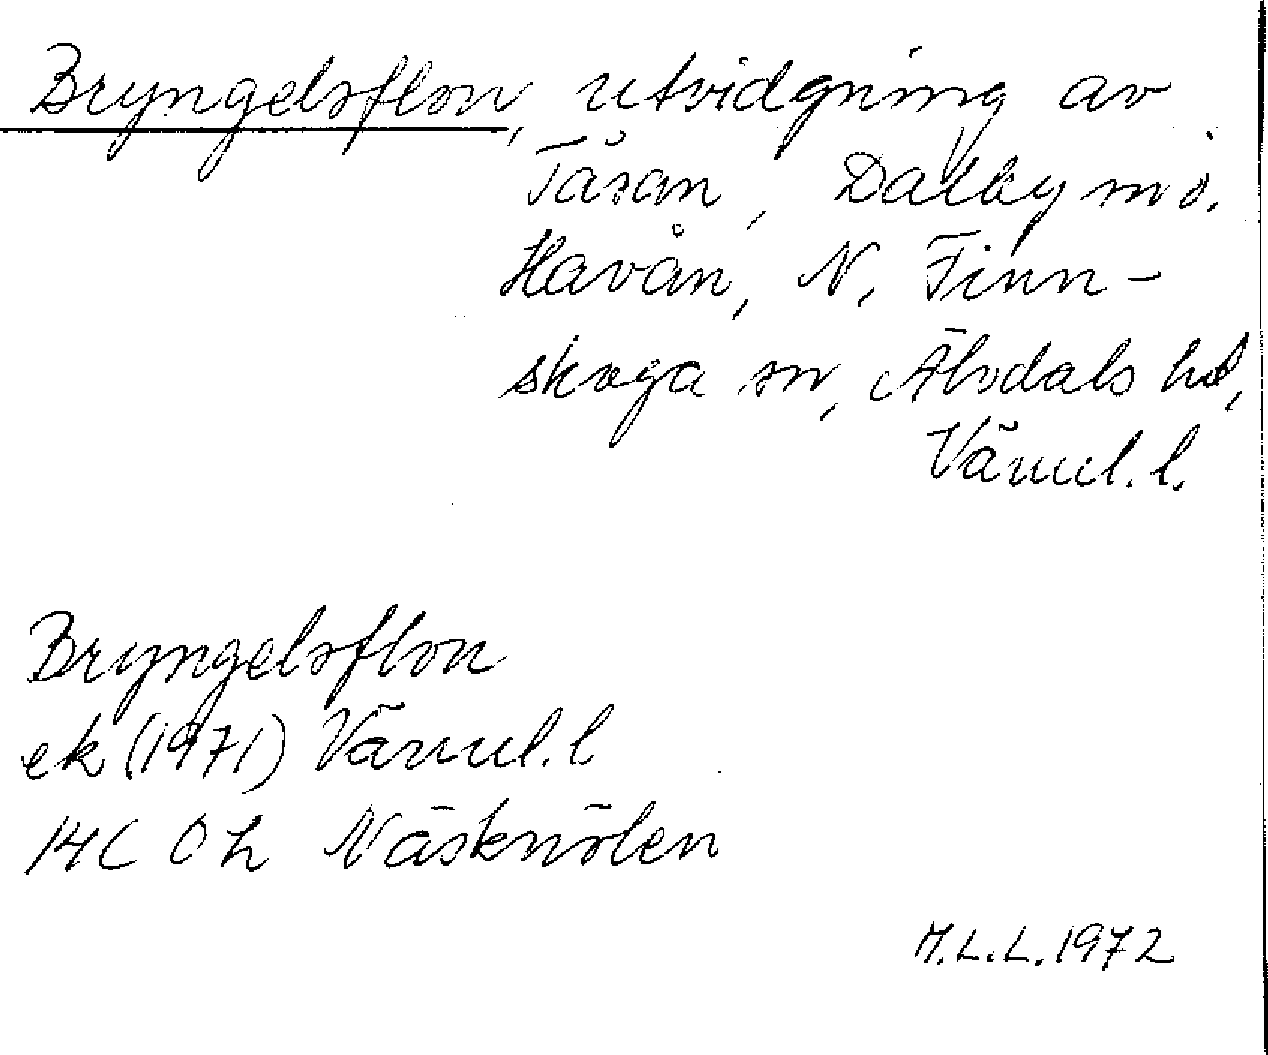 Bryngelsflon, utvidgning av
Tåsan, Dalby sn o.
Havån, N. Finn-
skoga sn, Älvdals hd,
Värml. l.
Bryngelsflon
ek (1971) Värml. l
14C 0h Näsknölen
M.L.L. 1972